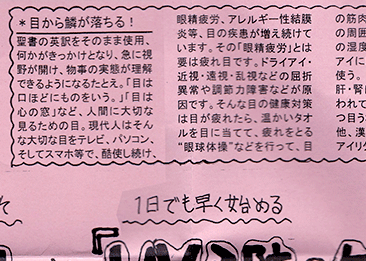 ＊目から鱗が落ちる！
聖書の英訳をそのまま使用、
何かがきっかけとなり、急に視
野が開け、物事の実態が理解
できるようになるたとえ。「目は
口ほどにものをいう。」「目は
心の窓」など、人間に大切な
見るための目。現代人はそん
な大切な目をテレビ、パソコン、
そしてスマホ等で、酷使し続け、
眼精疲労、アレルギー性結膜
炎等、目の疾患が増え続けて
います。その「眼精疲労」とは
要は疲れ目です。ドライアイ・
近視・遠視・乱視などの屈折
異常や調節力障害などが原
因です。そんな目の健康対策
は目が疲れたら、温かいタオ
ルを目に当てて、疲れをとる
“眼球体操”などを行って、目
の筋肉
の周囲
の湿度
イマ
使う。
肝・腎
われて
つ目う
他、漢
アイリ
そ
1日でも早く始める